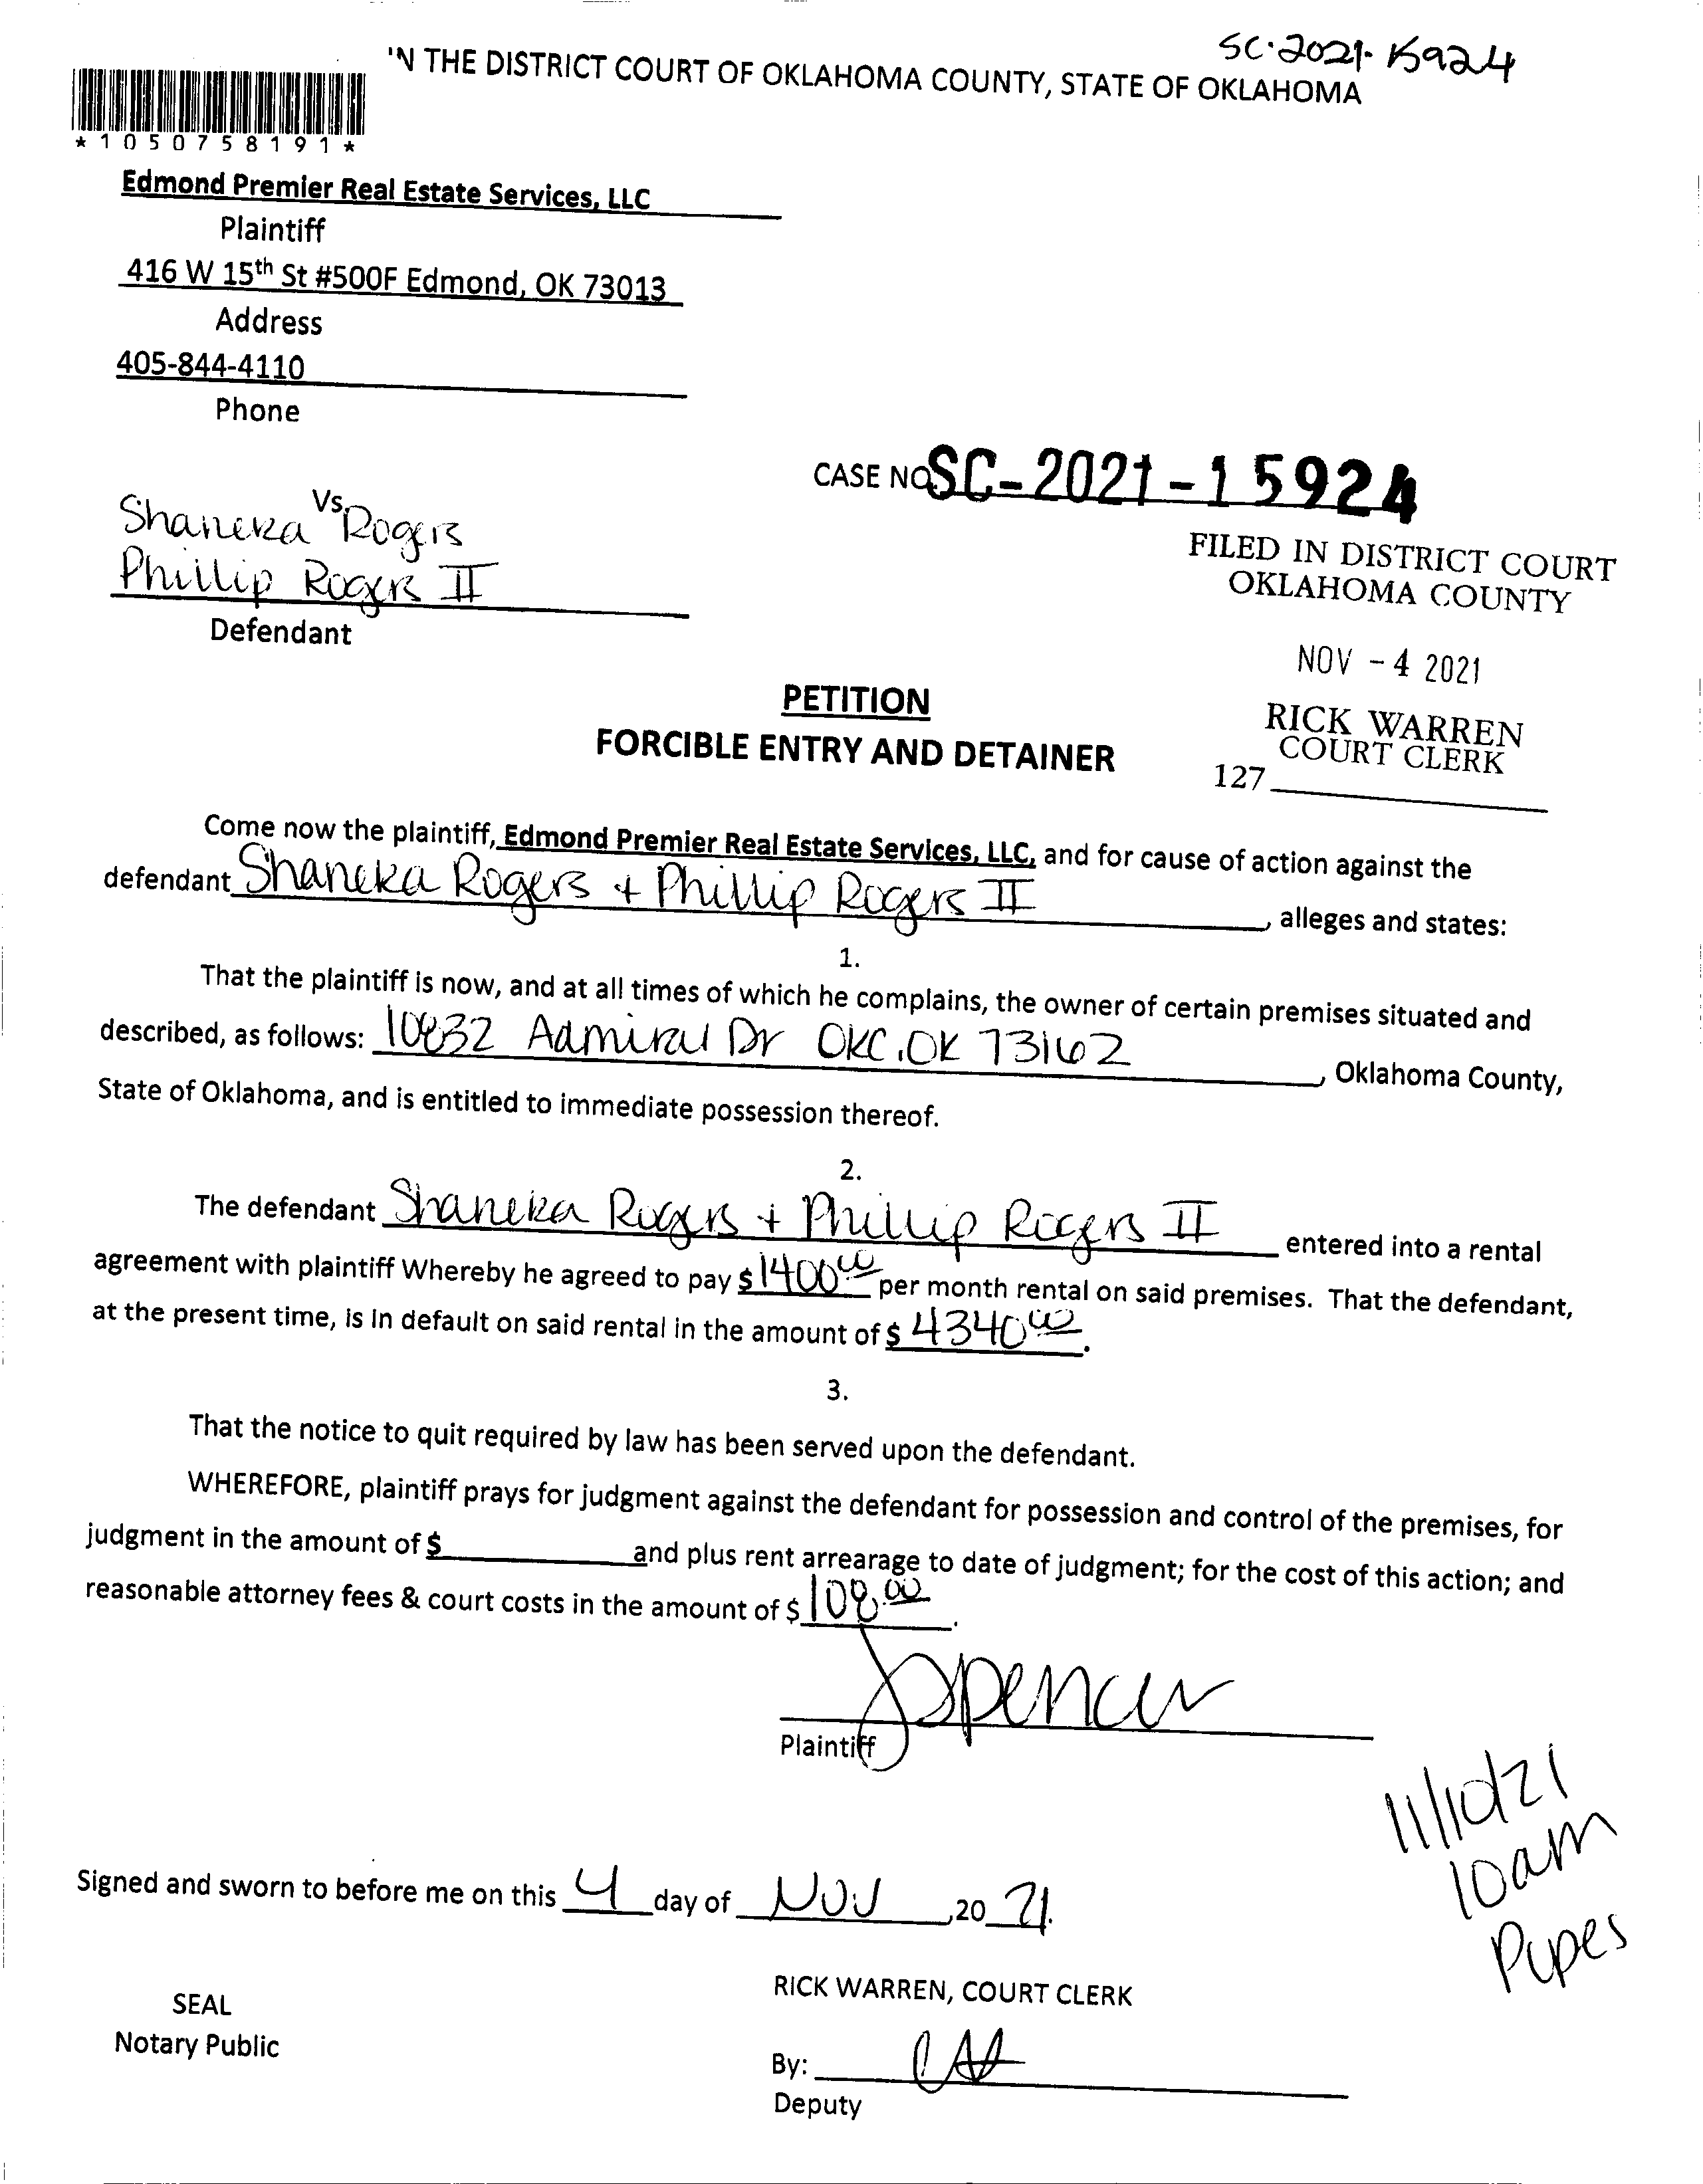 SC-2021-15924
'N THE DISTRICT COURT OF OKLAHOMA COUNTY, STATE OF OKLAHOMA
*1050758191*
Edmond Premier Real Estate Services, LLC
Plaintiff
416 W 15th St #500F Edmond, OK 73013
Address
405-844-4110
Phone
CASE NO. SC-2021-15924
Vs.
Shaneka Rogers
Phillip Rogers II
Defendant
FILED IN DISTRICT COURT
OKLAHOMA COUNTY
NOV - 4 2021
RICK WARREN
COURT CLERK
127
PETITION
FORCIBLE ENTRY AND DETAINER
Come now the plaintiff, Edmond Premier Real Estate Services, LLC, and for cause of action against the
defendant Shaneka Rogers + Phillip Rogers II, alleges and states:
1.
That the plaintiff is now, and at all times of which he complains, the owner of certain premises situated and
described, as follows: 10832 Admiral Dr OKC, OK 73162, Oklahoma County,
State of Oklahoma, and is entitled to immediate possession thereof.
2.
The defendant Shaneka Rogers + Phillip Rogers II entered into a rental
agreement with plaintiff Whereby he agreed to pay $1400.00 per month rental on said premises. That the defendant,
at the present time, is in default on said rental in the amount of $ 4340.00.
3.
That the notice to quit required by law has been served upon the defendant.
WHEREFORE, plaintiff prays for judgment against the defendant for possession and control of the premises, for
judgment in the amount of $ and plus rent arrearage to date of judgment; for the cost of this action; and
reasonable attorney fees & court costs in the amount of $ 108.00.
JSpencer
Plaintiff
11/10/21
10am
Pipes
Signed and sworn to before me on this 4 day of Nov, 20 21.
SEAL
Notary Public
RICK WARREN, COURT CLERK
By:
Deputy